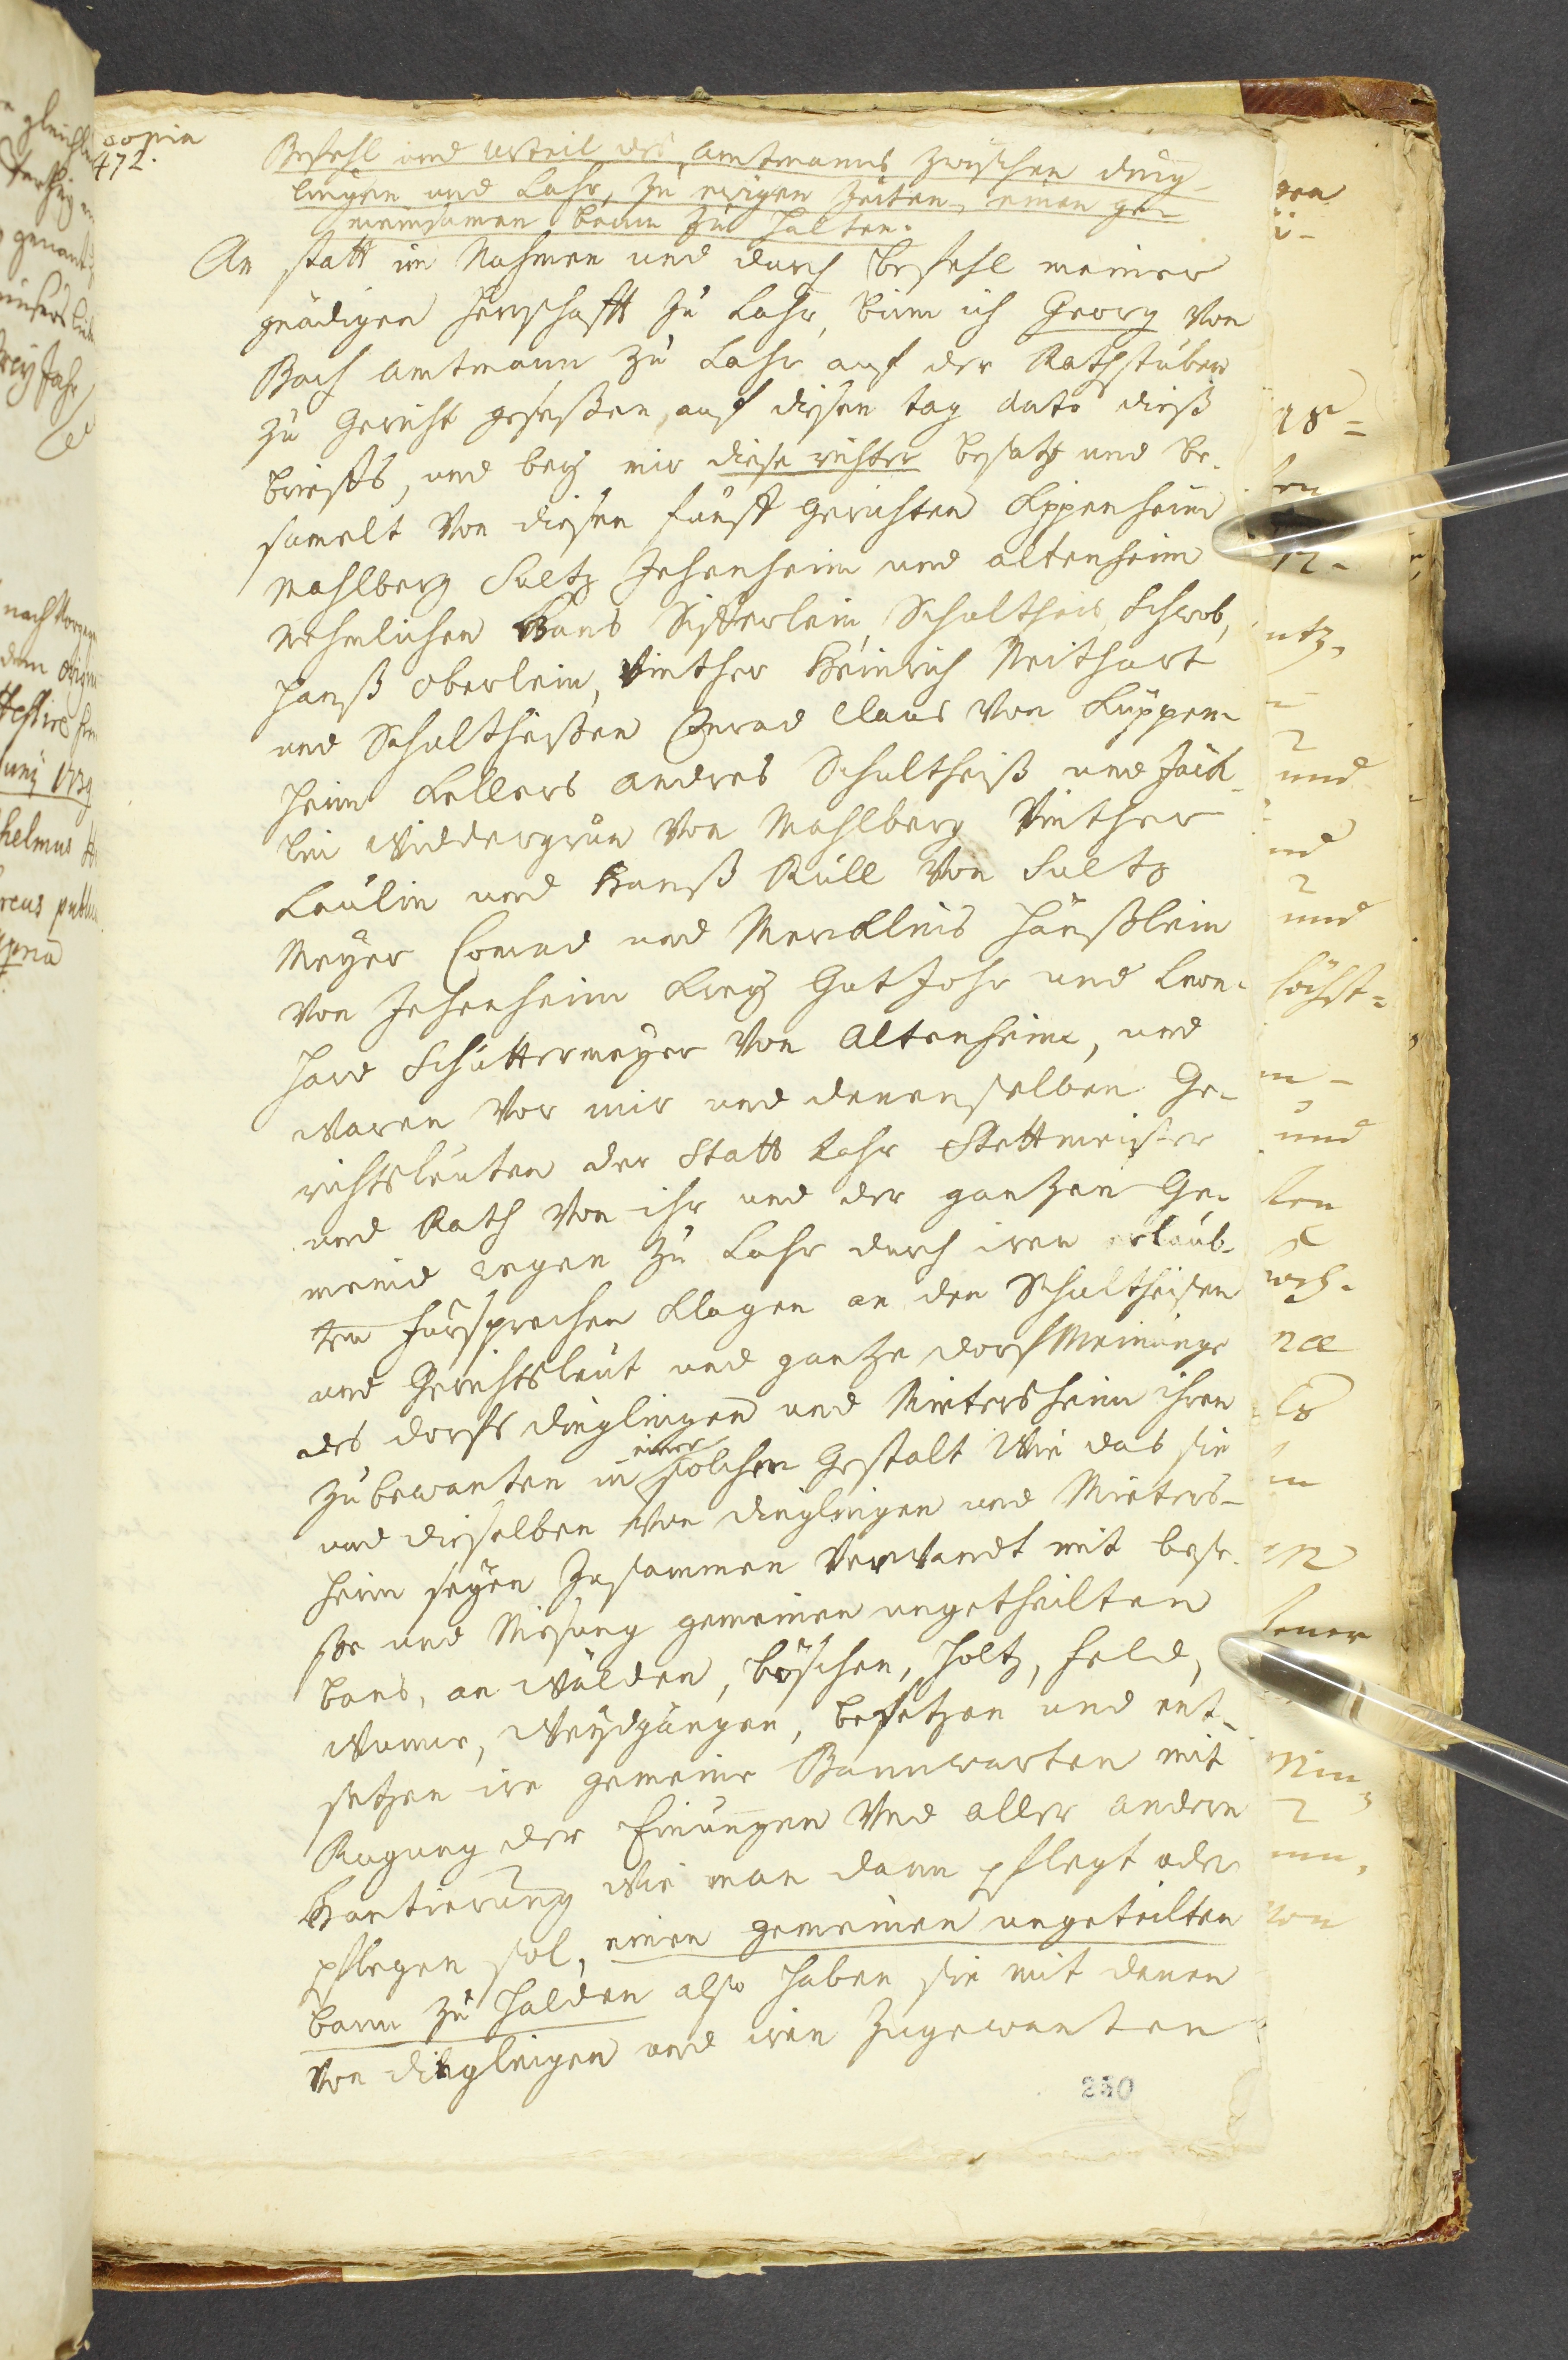 copia
472.
Befehl und urteil des amtmanns zwischen ding-
lingen und Lahr, zu ewigen Zeiten, einen ge-
meinsamen bann zu halten.
An statt im Nahmen und durch befehl meiner
gnädigen Herrschafft zu Lahr, binn ich Georg von
Bach amtmann zu Lahr auf der Rathstuben
zu Gericht geseßen, auf diesen tag dato dieß
brieffs, und bey mir diese richter besatz und be-
samelt von diesen fünff Gerichten Kippenheim
Mahlberg Sultz Ichenheim und altenheim
nehmlichen Hans Sifferlein, Schultheis, Schwob,
Hanß oberlein, Vinther Heinrich Neithart
und Schultheißen Conrad Claus von Küppen-
heim Kellers andres Schultheiß und Jäck-
lin Widdergrün von Mahlberg Vinther
Laulin und Hanß Rüll von Sultz
Meyer Conrad und Merckleins Hänßlein
von Ichenheim Krey Gut Johr und Leon-
hard Schüttermeyer von Altenheim, und
waren vor mir und denenselben Ge-
richtsleuten der Statt Lahr Stettmeister
und Rath von ihr und der gantzen Ge-
meind wegen zu Lahr durch iren erlaub-
ten fürsprechen klagen an den Schultheisen
und Gerichtsleut und gantze dorf Meinunge
des dorfs dinglingen und Mietersheim ihren
zubewanten in einer solchen Gestalt Wie das sie
und dieselben von dinglingen und Mieters-
heim seyen Zusammen Verwandt mit bese-
sse und Niesung gemeinen ungetheilten
bans, an Wälden, böschen, Holtz, Feld,
Wunne, Weydgängen, besetzen und ent-
setzen ire gemeine Bannwarten mit
Rugung der Einungen Und aller andern
Hantierung Wie man dann pflegt oder
pflegen sol, einen gemeinen ungeteilten
bann zu halden also haben sie mit denen
von dinglingen und iren Zugewanten
250